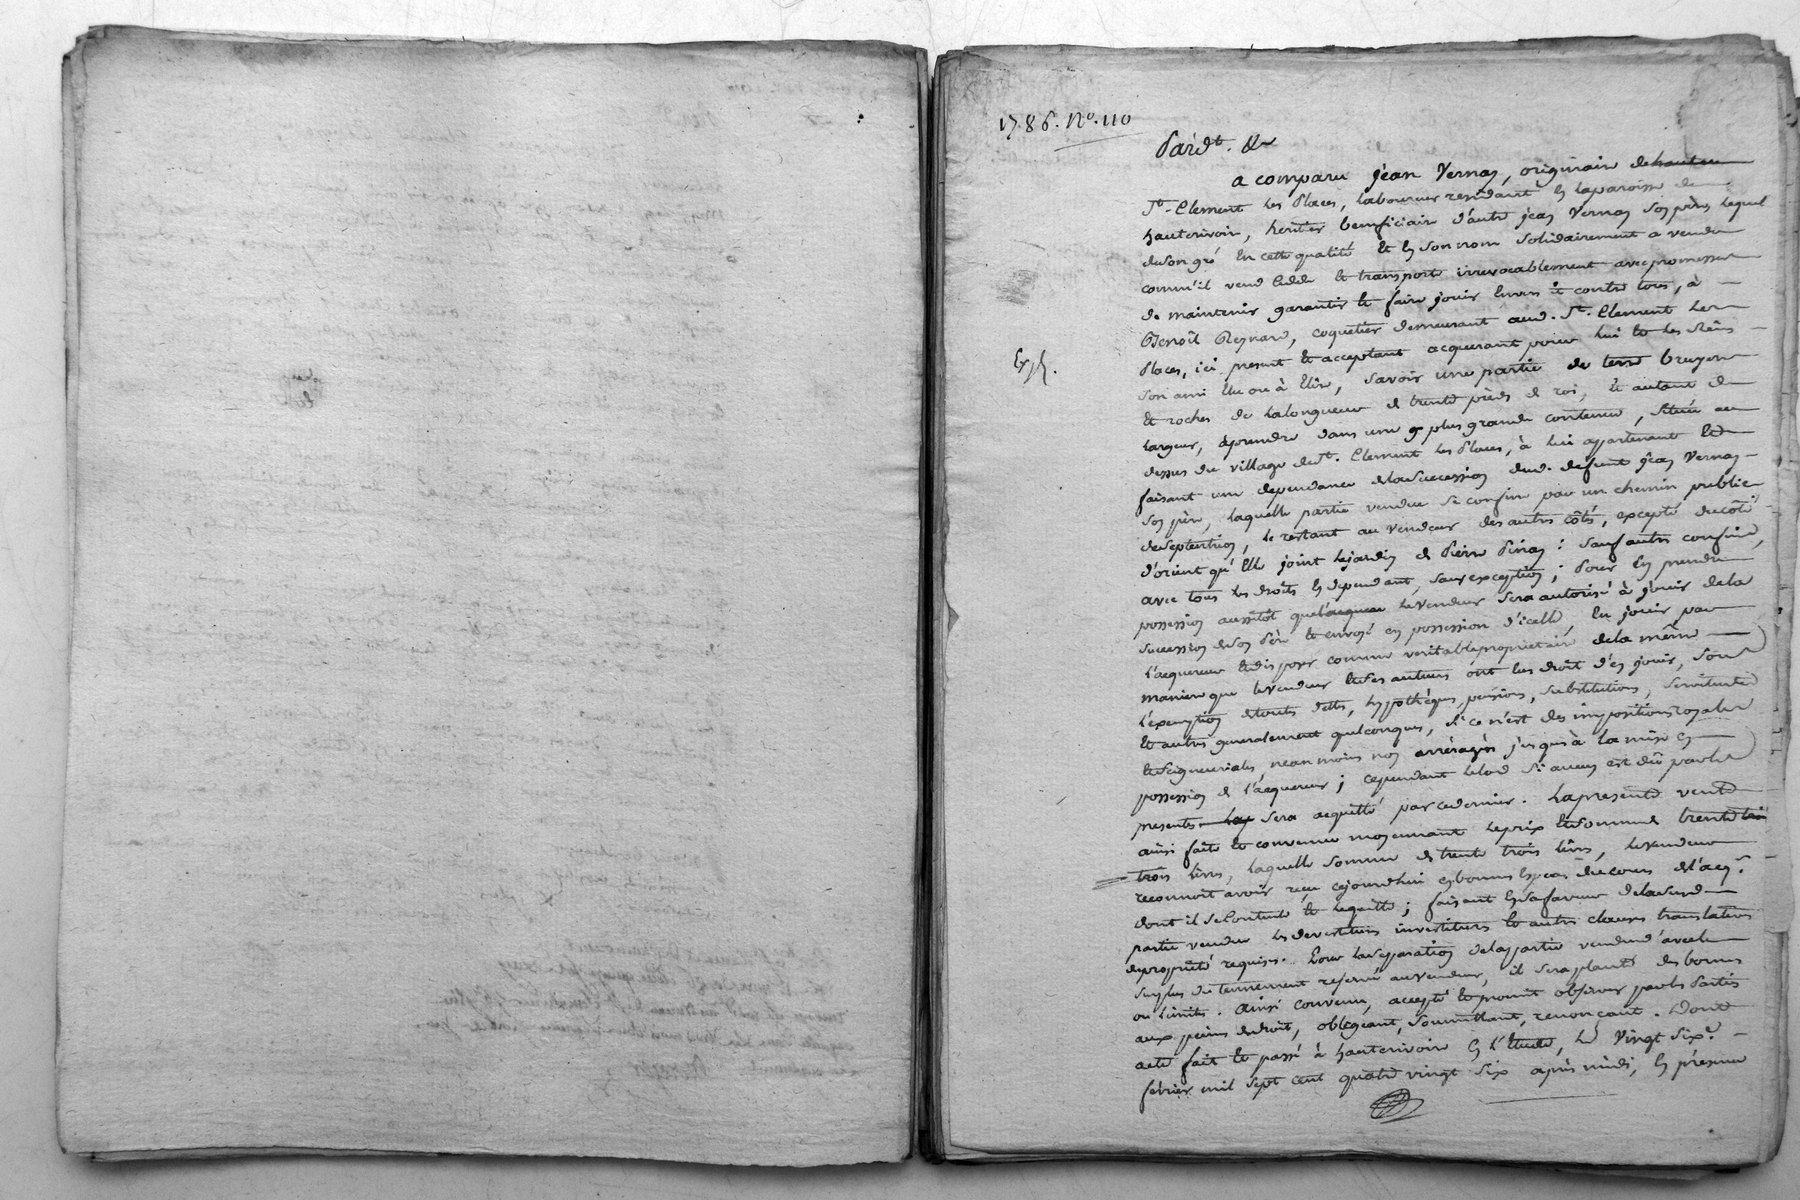 1786. No. 110
Pardt. &c
a comparu jéan Vernay, originaire de hauteri
St. Clement les Places, laboureur residant en la paroisse de
hauterivoir, heritier beneficiaire d'autre jean Vernay son père, lequel
de son gré en cette qualité et en son nom solidairement a vendu
comm'il vend cedde et transporte irrevocablement avec promesse
de maintenir garantir et faire jouir envers et contre tous, à
Benoît Reynard, coquetier demeurant aud. St. Clement les
Places, ici present et acceptant acquerant pour lui et les siens
Exp.
son ami élu ou à élire, savoir une partie de terre bruyere
et roches de la longueur de trente pieds de roi, et autant de
largeur, àprendre dans une plus grande contenue, située au
dessus du village de St. Clement les Places, à lui appartenant et
faisant une dependance de la succession dud. defunt jéan Vernay
son père, laquelle partie vendue se confine par un chemin public
de septentrion, le restant au vendeur des autres côtés, excepté du côté
d'orient qu'elle joint le jardin de Pierre Pinay : sauf autres confins,
avec tous les droits en dependant, sans exception ; pour en prendre
possession aussitôt que l'acquereur le vendeur sera autorisé à jouir de la
succession de son père et envoyé en possession d'icelle, en jouir par
l'acquereur et disposer comme veritable proprietaire de la même
maniere que le vendeur et ses auteurs ont eu droit d'en jouir, sous
l'exemption de toutes dettes, hypothèques, pensions, substitutions, servitudes
et autres generalement quelconques, si ce n'est des impositions royales
et seigneuriales, neanmoins non arréragés jusqu'à la mise en
possession de l'acquereur ; cependant le lod si aucun est dû par les
presentes lay sera acquitté par ce dernier. La presente vente
ainsi faite et convenue moyennant le prix et somme de trente
trois livres, laquelle somme de trente trois livres, le vendeur
reconnoit avoir reçu cejourdhui en bonnes especes du cours de l'acqr.
dont il se contente et le quitte ; faisant en sa faveur de la susd
partie vendue les devestitures investitures et autres clauses translatives
de proprieté requises. Pour la separation de la partie vendue d'avec le
surplus du tennement reservé au vendeur, il sera planté des bornes
ou limites. Ainsi convenu, accepté et promit observer par les Parties
aux peines de droit, obligeant, soumettant, renoncant. Dont
acte fait et passé à hauterivoir en l'Etude, le vingt six
février mil sept cent quatre vingt six après midi, en présence